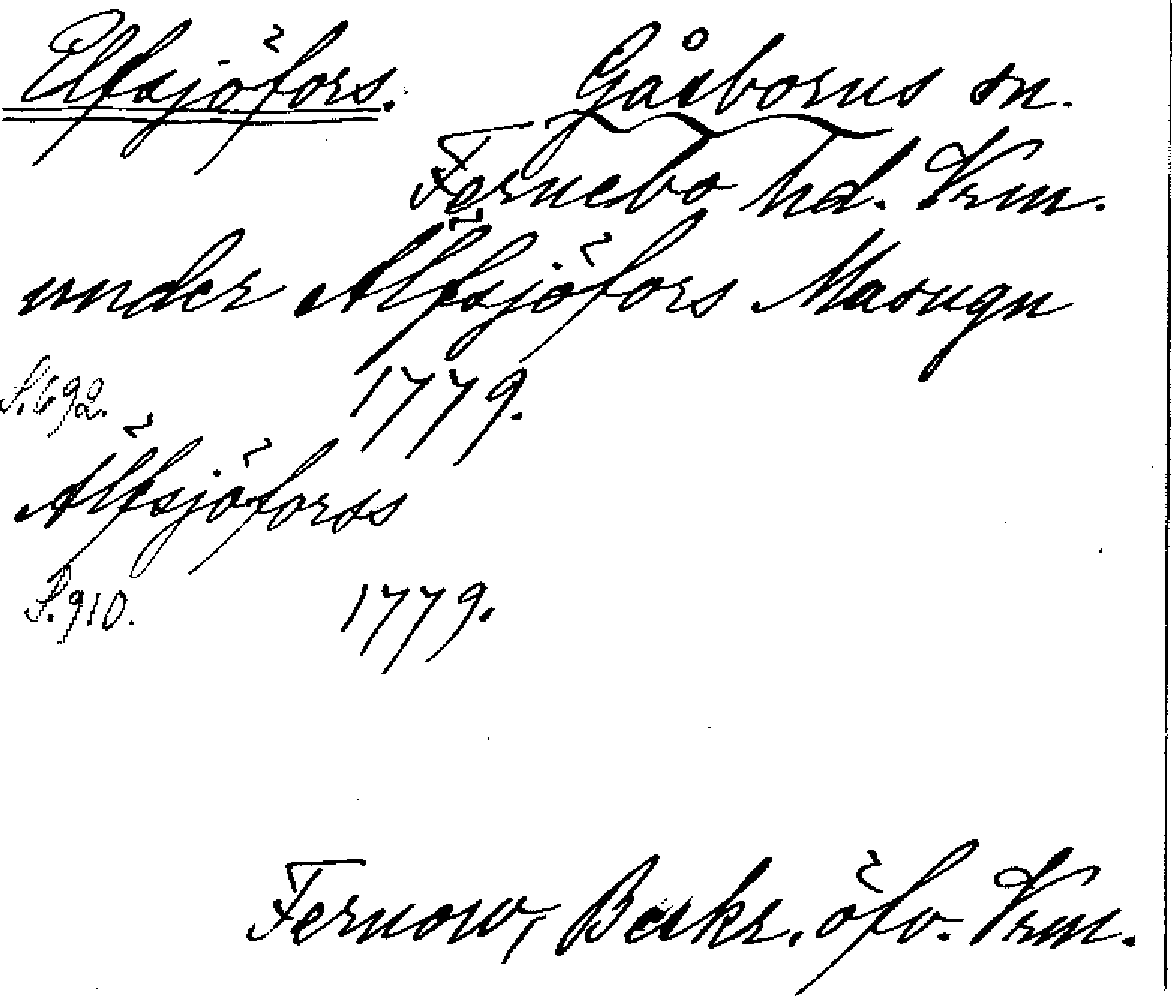 Elfsjöfors. Gåsborns sn.
Fernebo hd. Vrm.
under Älfsjöfors Masugn
S.692. 1779.
Älfsjöforss
S.910. 1779.
Fernow, Beskr. öfv. Vrm.